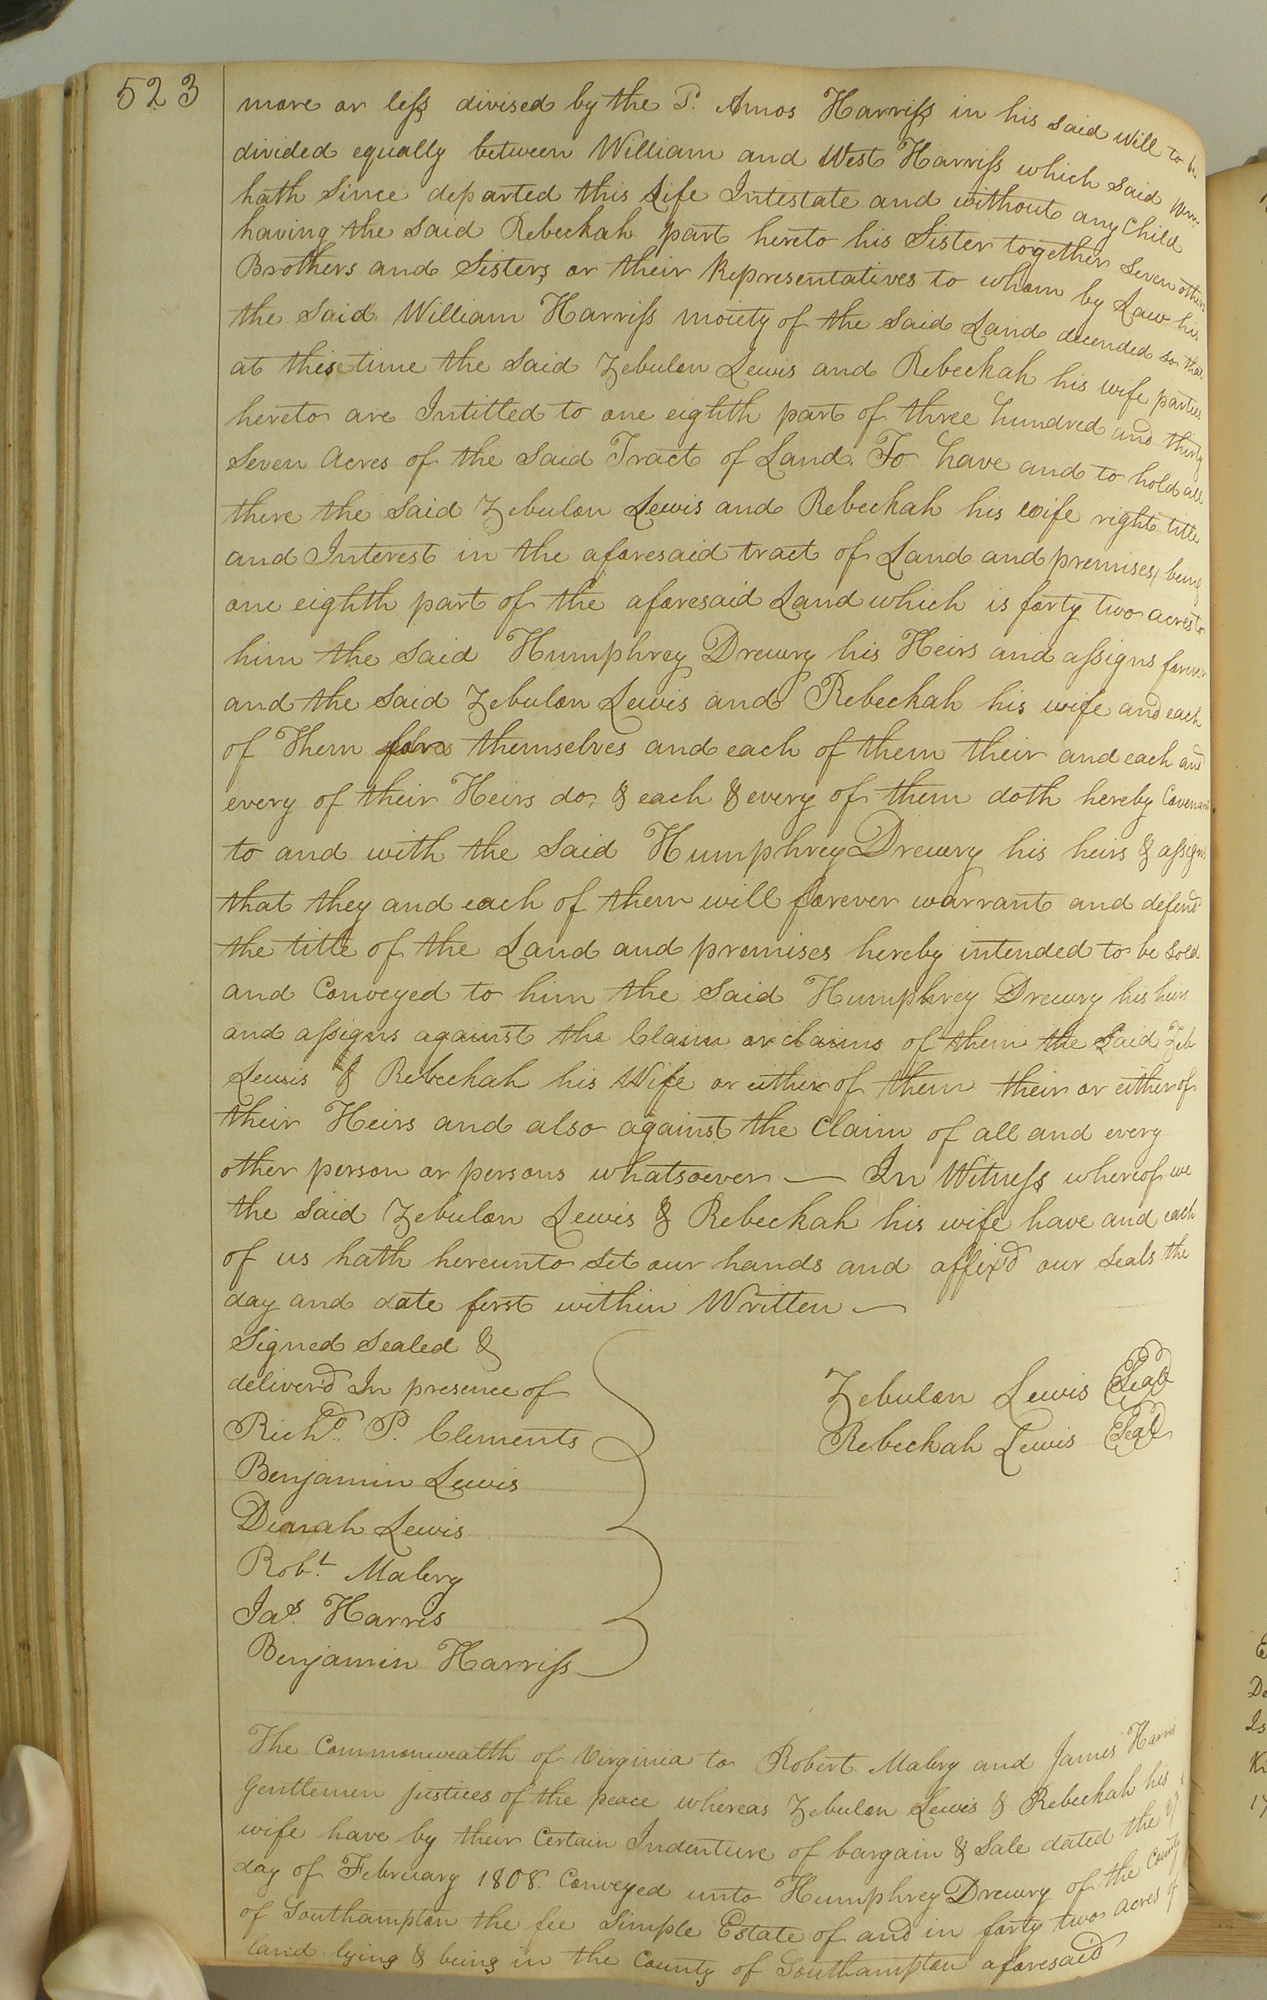 523
more or less divised by the P. Amos Harriss in his said will to be
divided equally between William and West Harriss which said Wm.
hath Since departed this Life Intestate and without any Child
having the said Rebeckah part hereto his Sister together Seven other
Brothers and Sisters or their Representatives to whom by Law his
the said William Harriss moiety of the said Land decended so that
at this time the said Zebulon Lewis and Rebeckah his wife parties
hereto are Intitled to one eighth part of three hundred and thirty
Seven Acres of the said Tract of Land. To have and to hold all
there the said Zebulon Lewis and Rebeckah his wife right title
and Interest in the aforesaid tract of Land and premises, being
one eighth part of the aforesaid Land which is forty two acres to
him the said Humphrey Drewry his Heirs and assigns forever
and the said Zebulon Lewis and Rebeckah his wife and each
of Them for themselves and each of them their and each and
every of their Heirs do, & each & every of them doth hereby Covenant
to and with the said Humphrey Drewry his heirs & assigns
that they and each of them will forever warrant and defend
the title of the Land and premises hereby intended to be sold
and Conveyed to him the said Humphrey Drewry his heirs
and assigns against the Claim or claims of them the said Zeb
Lewis & Rebeckah his Wife or either of them their or either of
their Heirs and also against the Claim of all and every
other person or persons whatsoever — In Witness whereof we
the said Zebulon Lewis & Rebeckah his wife have and each
of us hath hereunto Set our hands and affix'd our seals the
day and date first within Written —
Signed Sealed &
deliver'd In presence of
Richd. P. Clements
Benjamin Lewis
Dianah Lewis
Robt. Mabry
Jas. Harris
Benjamin Harriss
Zebulon Lewis Seal
Rebeckah Lewis Seal
The Commonwealth of Virginia to Robert Mabry and James Harris
Gentlemen Justices of the peace whereas Zebulon Lewis & Rebeckah his
wife have by their Certain Indenture of bargain & Sale dated the
day of February 1808 Conveyed unto Humphrey Drewry of the County
of Southampton the fee Simple Estate of and in forty two acres of
land lying & being in the County of Southampton aforesaid